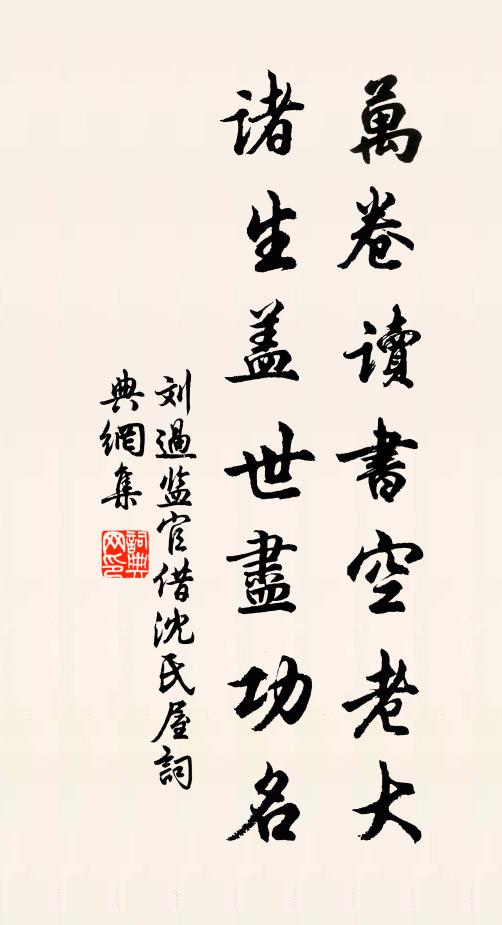 萬卷讀書空老大
諸生蓋世盡功名
刘過监官借沈氏屋詞
典網集
詞典
网印